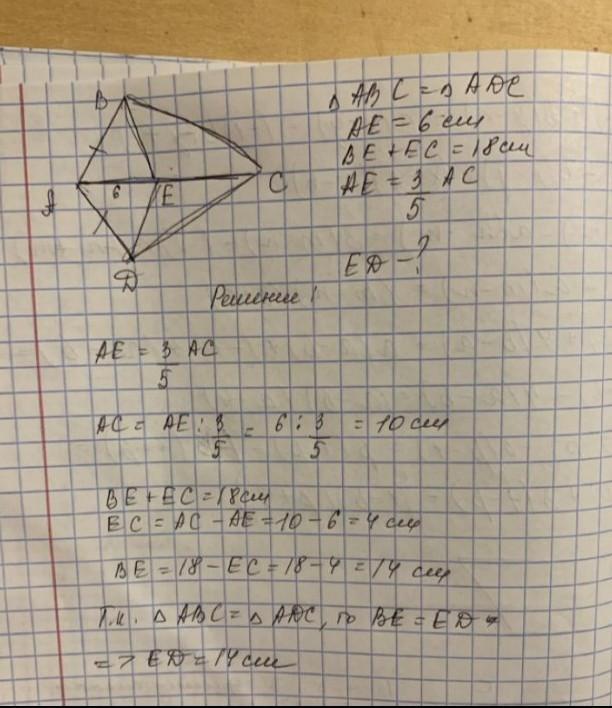 B
A
6
E
C
D
△ ABC = △ ADC
AE = 6 см
BE + EC = 18 см
AE = 3/5 AC
ED - ?
Решение!
AE = 3/5 AC
AC = AE : 3/5 = 6 : 3/5 = 10 см
BE + EC = 18 см
EC = AC - AE = 10 - 6 = 4 см
BE = 18 - EC = 18 - 4 = 14 см
Т.к. △ ABC = △ ADC, то BE = ED
=> ED = 14 см